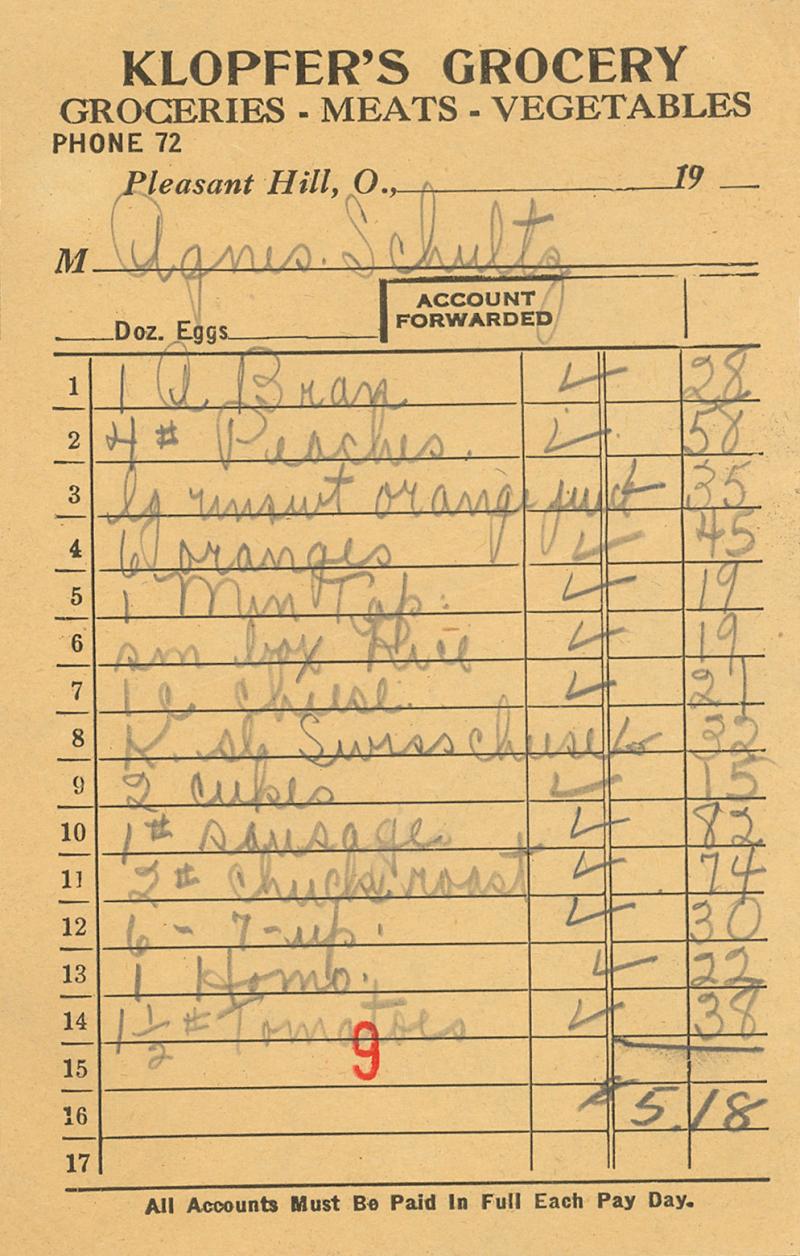 KLOPFER'S GROCERY
GROCERIES - MEATS - VEGETABLES
PHONE 72
Pleasant Hill, O., 19
M Agnes. Schultz
Doz. Eggs
ACCOUNT
FORWARDED
1 1 A. Bran 28
2 4# Peaches. 58
3 lg runswt orange juice 35
4 6 oranges 45
5 1 Min Tap: 19
6 sm box Rice 19
7 1 c cheese. 21
8 K. sly Swiss cheese 32
9 2 cukes 15
10 1# sausage 82
11 2# chuck roast 74
12 6 - 7-up. 30
13 1 Homo. 22
14 1 1/2 # Tomatoes 38
15 9
16 $5.18
17
All Accounts Must Be Paid In Full Each Pay Day.